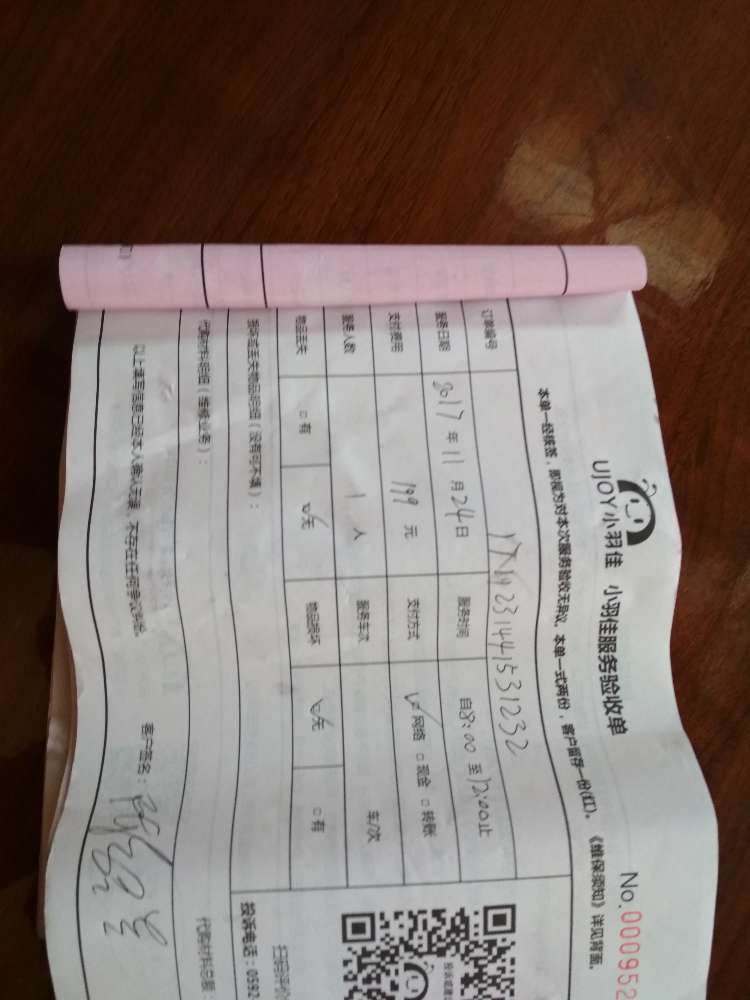 UJOY小羽佳 小羽佳服务验收单
No.000952
本单一经核签，即视为对本次服务验收无异议，本单一式两份，客户留存一份(红)。《维保须知》详见背面。
订单编号
服务日期 2017年11月24日 服务时间 自8:00至12:00止
支付费用 199元 支付方式 ☑网络 □现金 □转账
服务人数 1人 服务车次 车/次
物品丢失 □有 ☑无 物品损坏 ☑无 □有
损坏或丢失物品明细（没有可不填）：
代购材料明细（维修业务）：
代购材料总额:
以上填写信息已经本人确认无误，不存在任何争议纠纷。
客户签名：
投诉电话：0592